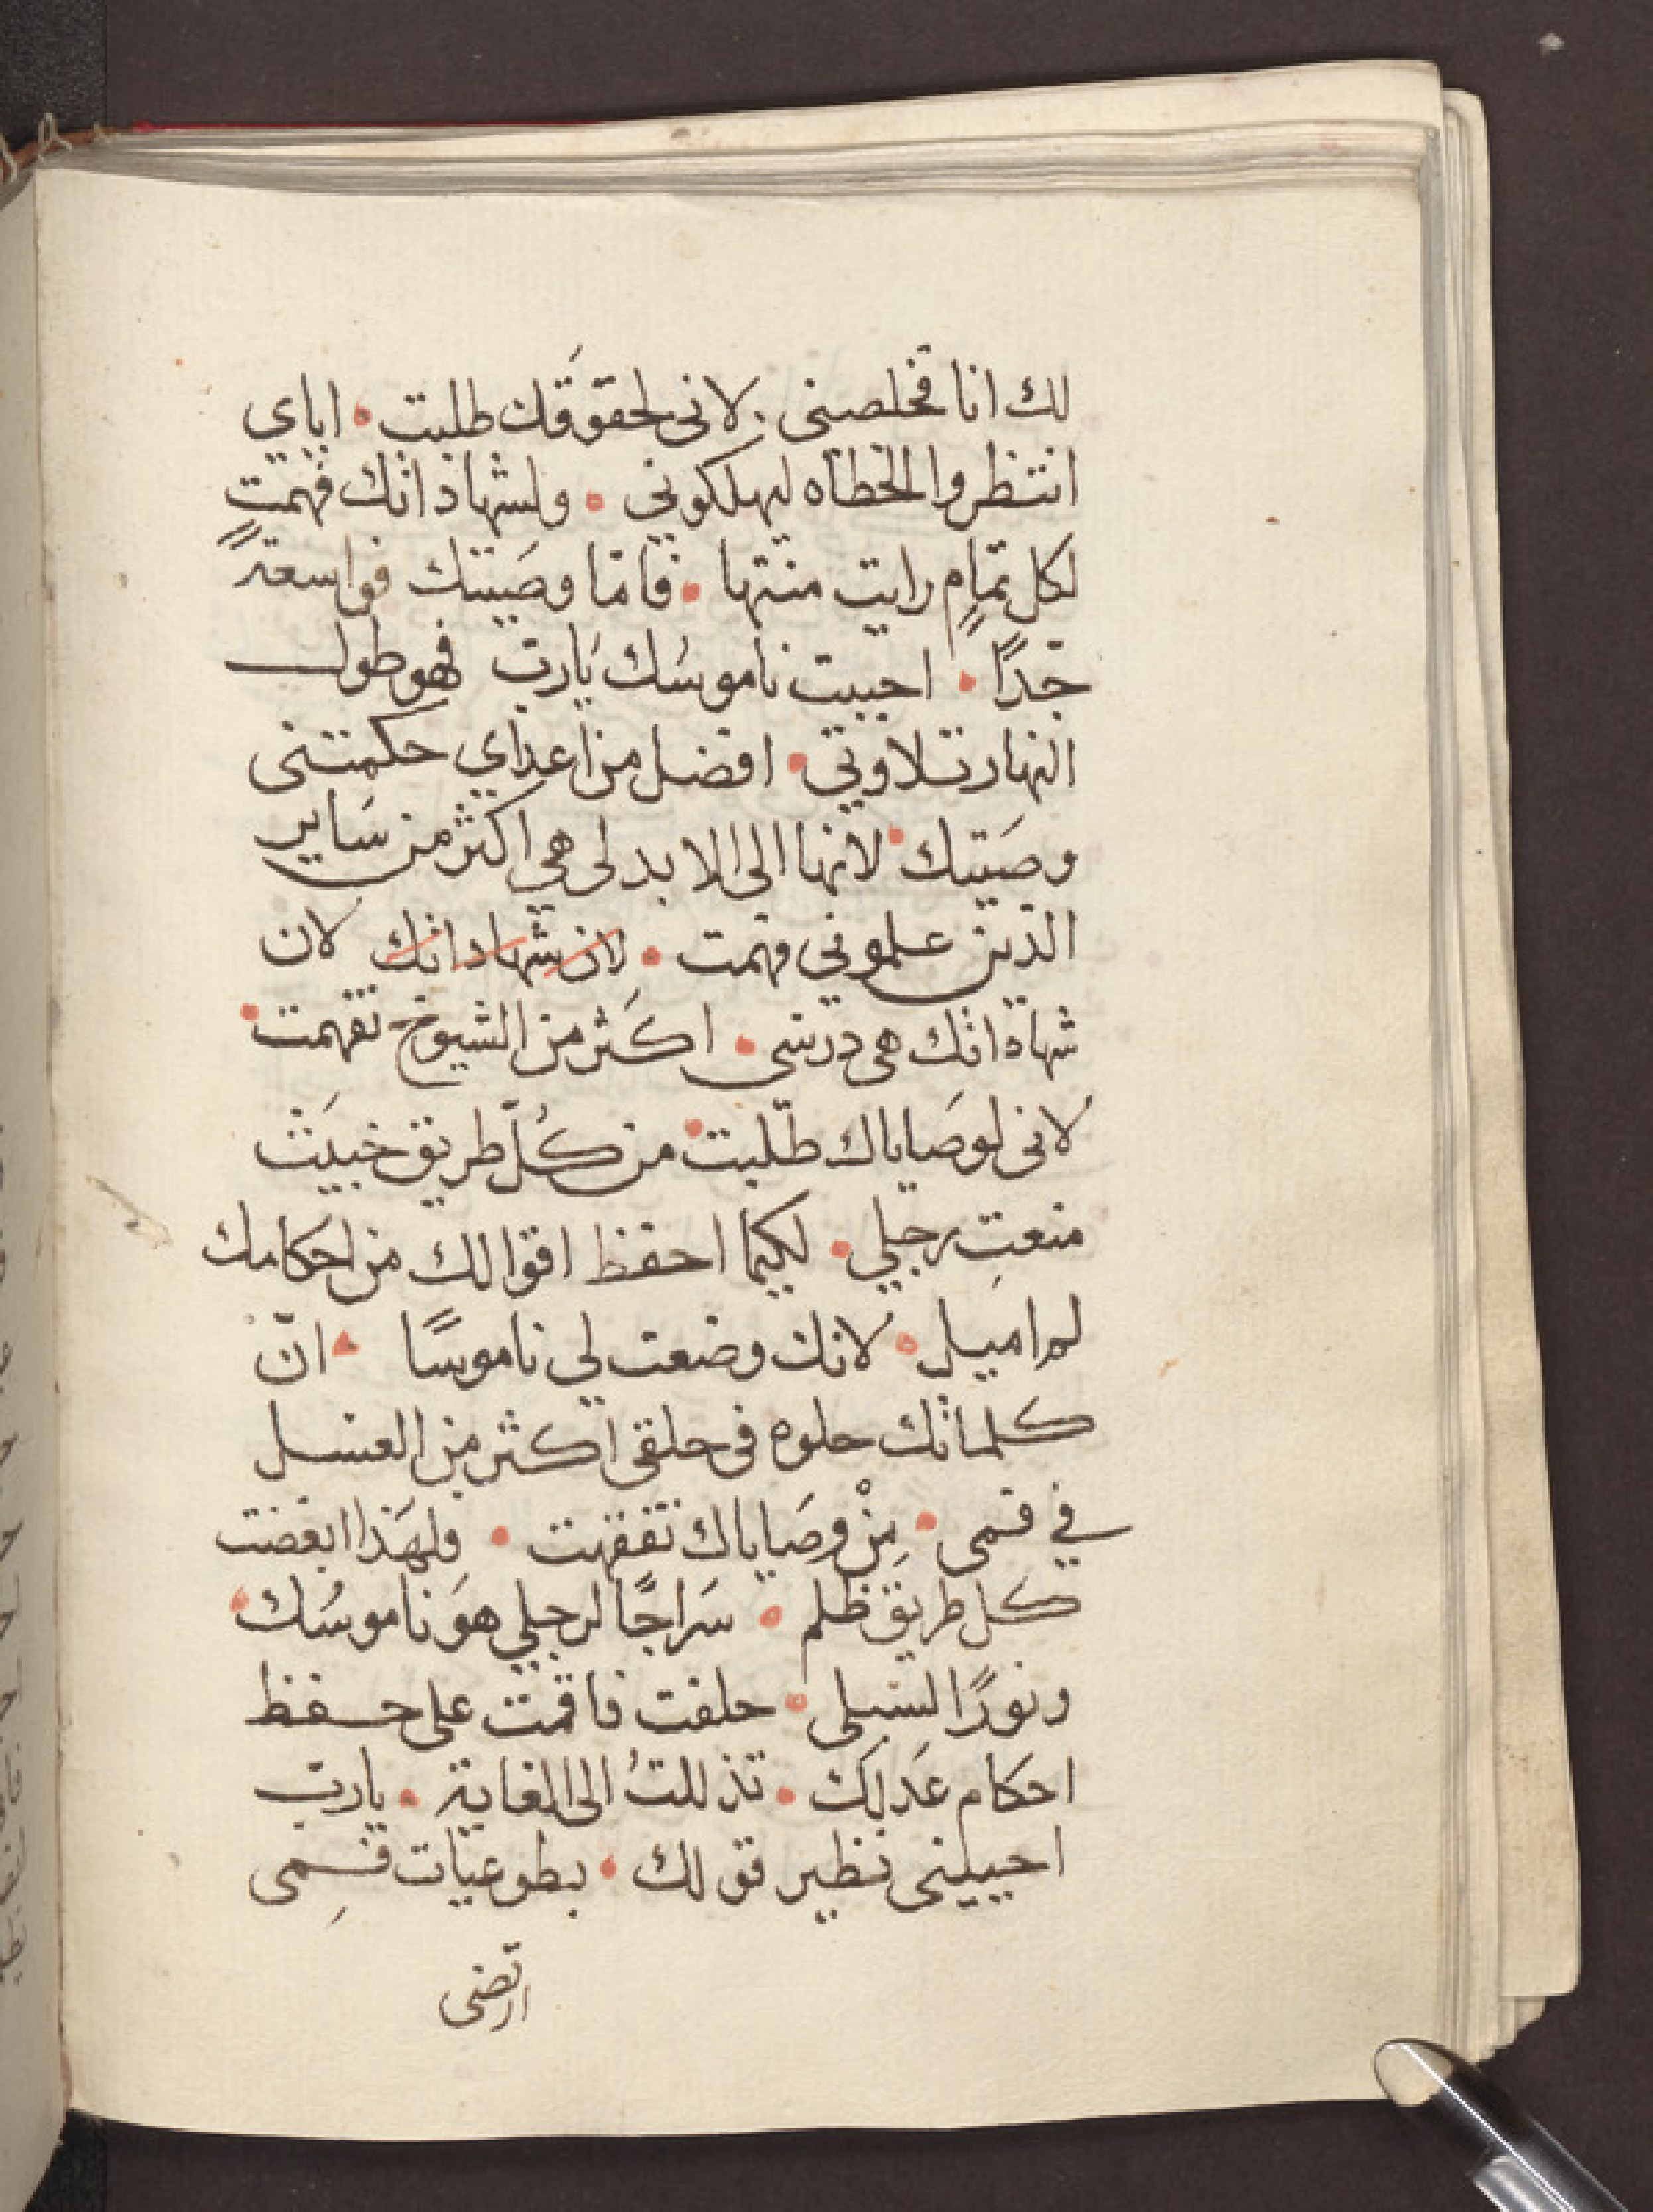 لك انا فخلصنى. لانى لحقوقَك طلبت • اياي
انتظروا الخطاه ليهلكوني • ولشهاداتك فهمت
لكل تمامٍ رايت منتها • فامّا وصَيتك فواسعةً
جَدًا • احببت ناموسُك يَارب فهو طول
النهار تلاوتي • افضل من اعداي حكمتنى
وصَيتك • لانها الى الابد لى هي اكثر من سَاير
الذين علموني فهمت • لان شهاداتك لان
شهاداتك هى درسي • اكَثر من الشيوخ تفهمت •
لانى لوصَاياك طلبت • من كُلّ طريق خبيَث
منعتِ رجلي • لكيما احفظ اقوالك من احكامك
لم اميل • لانك وضعت لي ناموسًا • انّ
كلماتك حلوه فى حلقى اكثر من العسل
في فمى • مِنْ وصَاياك تفقهت • ولهَذا ابغضت
كَل طريق ظلم • سَراجًا لرجلي هوَ ناموسُك •
ونورًا لسبلى • حلفت فاقمت على حفظ
احكام عَدلك • تذللتُ الى الغاية • يارب
احييينى نظير قولك • بطوعيات فمِى
ارتضى